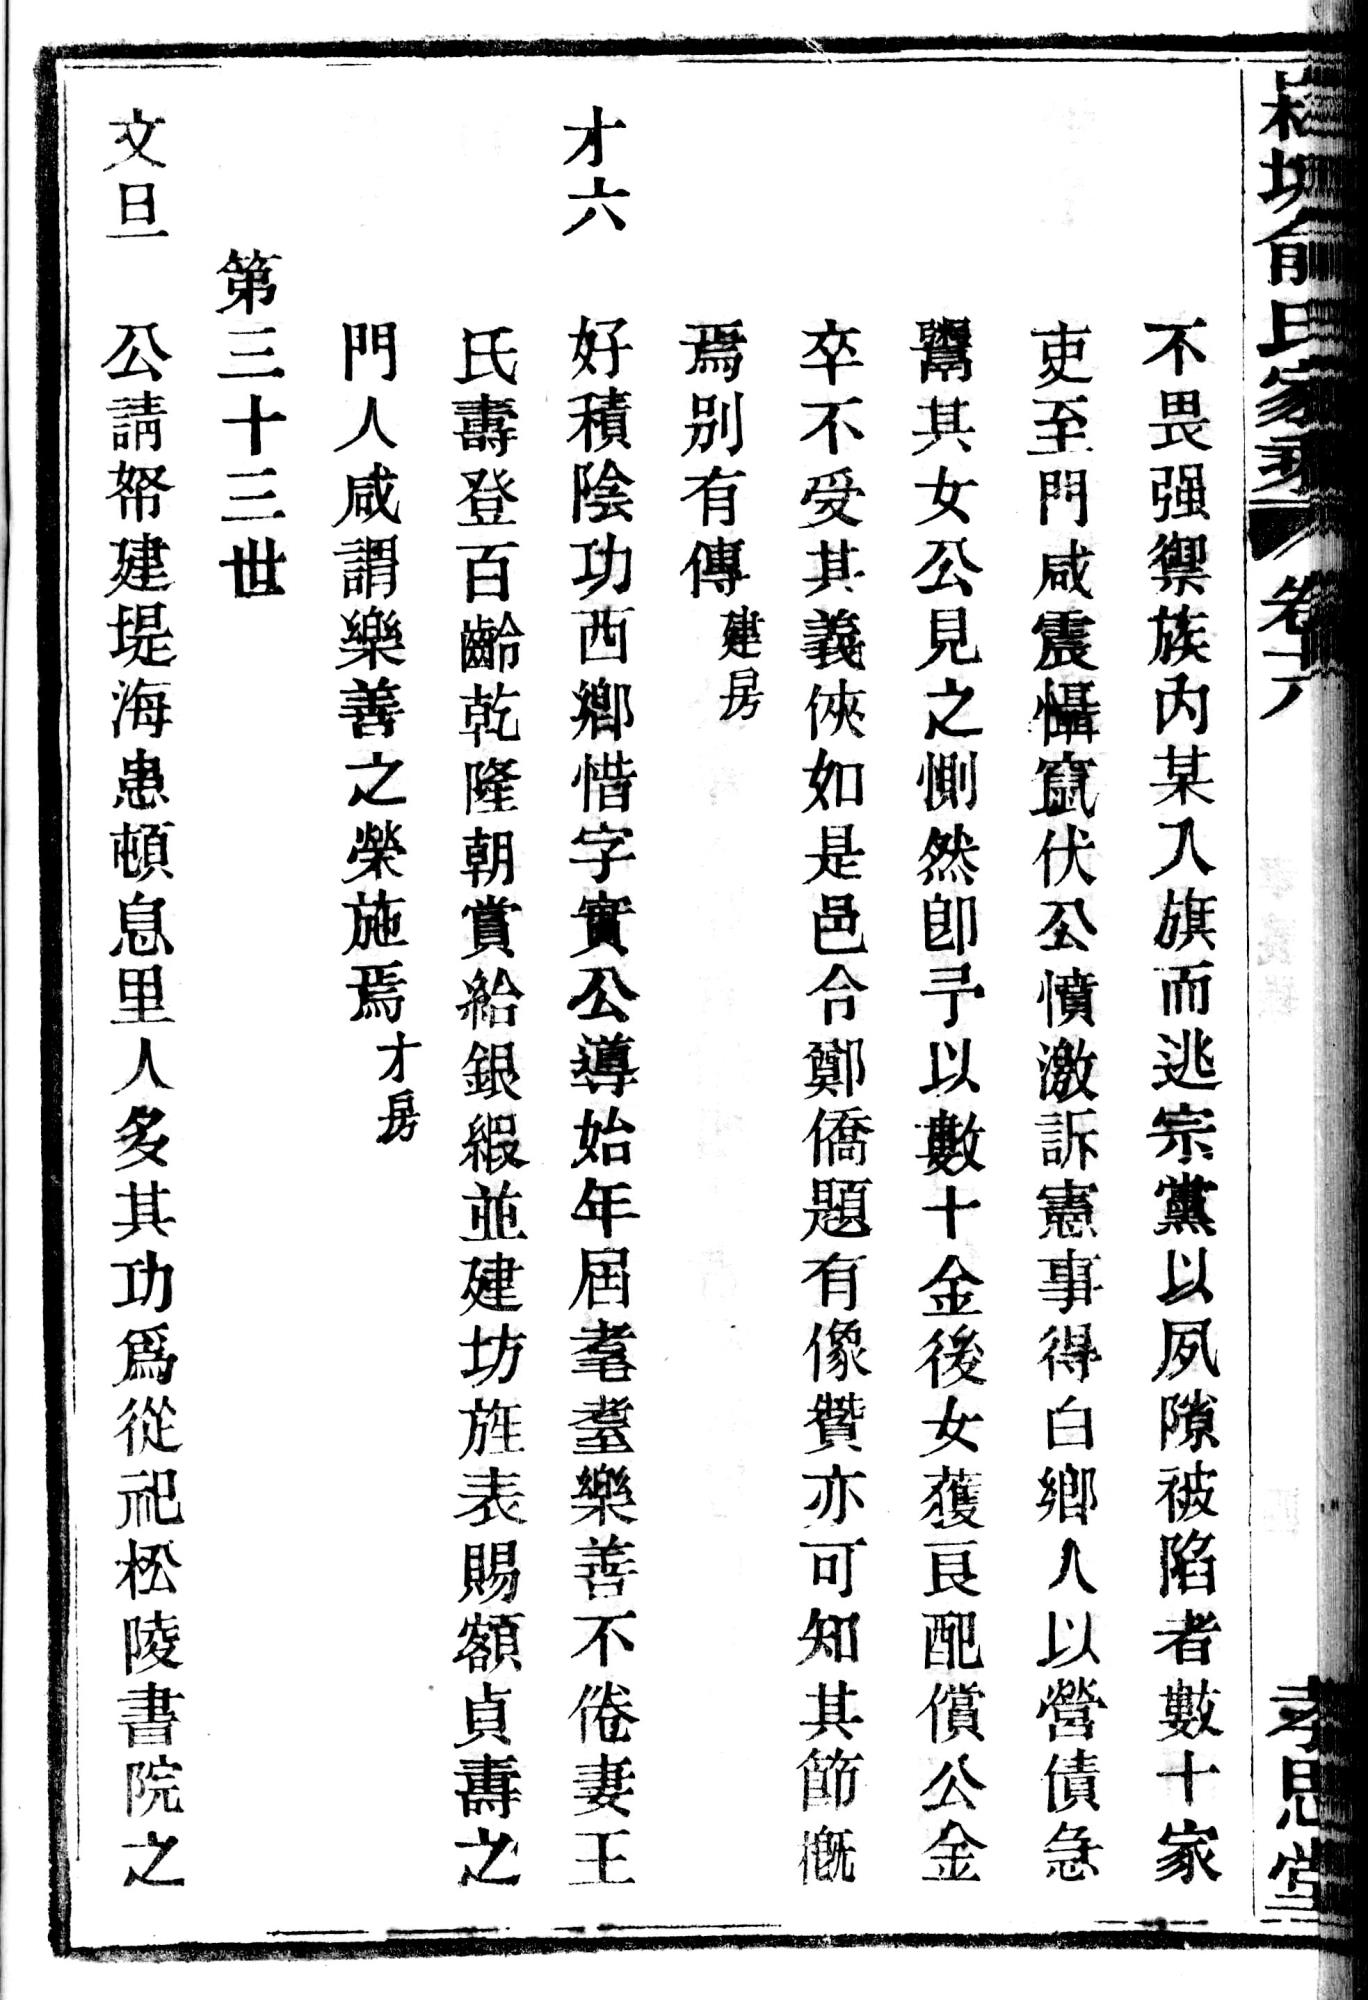 俞氏家乘 卷十六 孝思堂
不畏强禦族內某入旗而逃宗黨以夙隙被陷者數十家
吏至門咸震懾竄伏公憤激訴憲事得白鄉人以營債急
鬻其女公見之惻然卽予以數十金後女獲良配償公金
卒不受其義俠如是邑令鄭僑題有像贊亦可知其節槪
焉別有傳 建房
才六 好積陰功西鄉惜字實公導始年屆耄耋樂善不倦妻王
氏壽登百齡乾隆朝賞給銀緞並建坊旌表賜額貞壽之
門人咸謂樂善之榮施焉 才房
第三十三世
文旦 公請帑建堤海患頓息里人多其功爲從祀松陵書院之